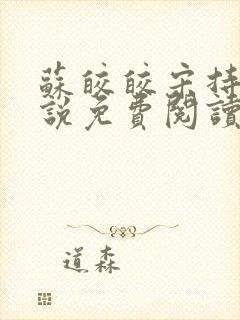 蘇皎皎宋持
說免費閱讀
道森